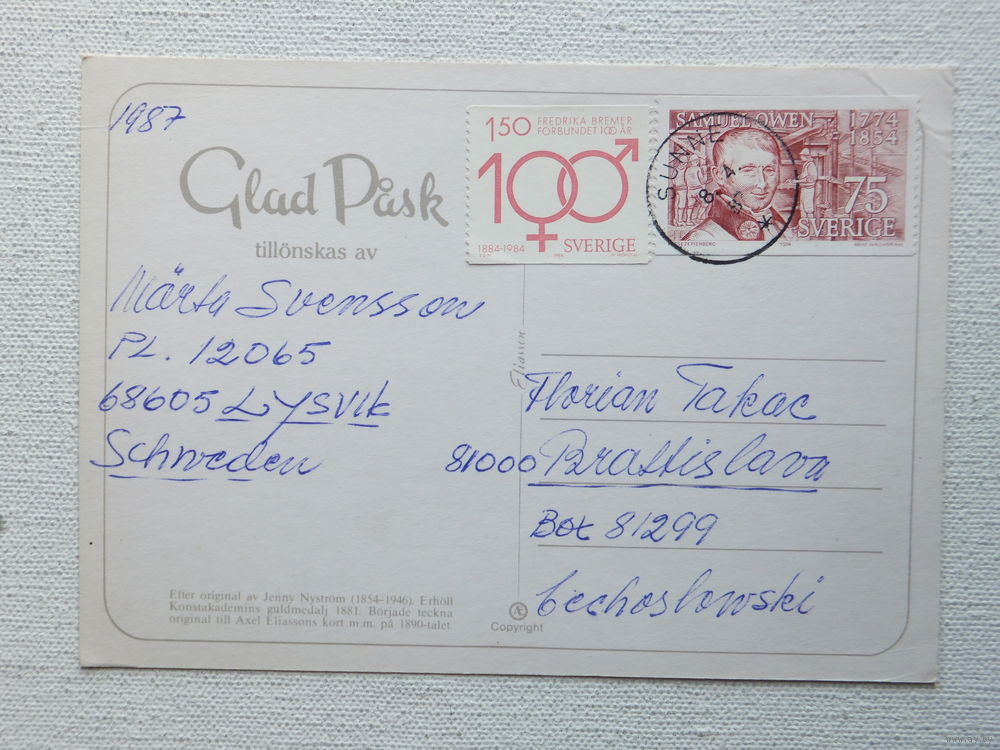 1987
Glad Påsk
tillönskas av
Märta Svensson
PL. 12065
68605 LYSVIK
Schweden
Efter original av Jenny Nyström (1854–1946). Erhöll
Konstakademins guldmedalj 1881. Började teckna
original till Axel Eliassons kort m.m. på 1890-talet.
150 FREDRIKA BREMER
FÖRBUNDET 100 ÅR
100
1884-1984 SVERIGE
SAMUEL OWEN 1774
1854
75
SVERIGE
SUNNE
Eliasson
Æ
Copyright
Florian Takac
81000 Brattislava
Bot 81299
Cechoslowski